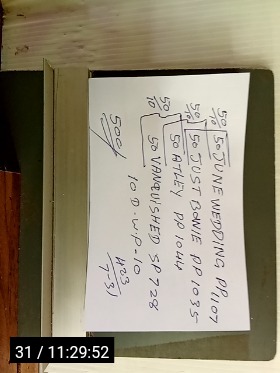 50/10 50. JUNE WEDDING PP1107
50/10 50. JUST BOWIE PP1035
50 ATHEY PP1044
50/10 50 VANQUISHED SP728
10 D. W. P=10
500/
423
7-31
31 / 11:29:52